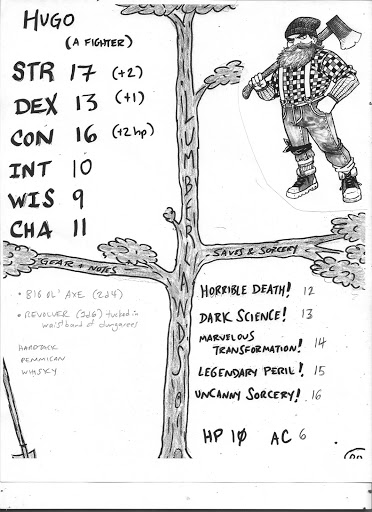 HUGO
(A FIGHTER)
STR 17 (+2)
DEX 13 (+1)
CON 16 (+2 hp)
INT 10
WIS 9
CHA 11
LUMBER LANDS
GEAR + NOTES
• BIG OL' AXE (2d4)
• REVOLVER (2d6) tucked in
waistband of dungarees
HARDTACK
PEMMICAN
WHISKY
SAVES & SORCERY
HORRIBLE DEATH! 12
DARK SCIENCE! 13
MARVELOUS
TRANSFORMATION! 14
LEGENDARY PERIL! 15
UNCANNY SORCERY! 16
HP 10 AC 6